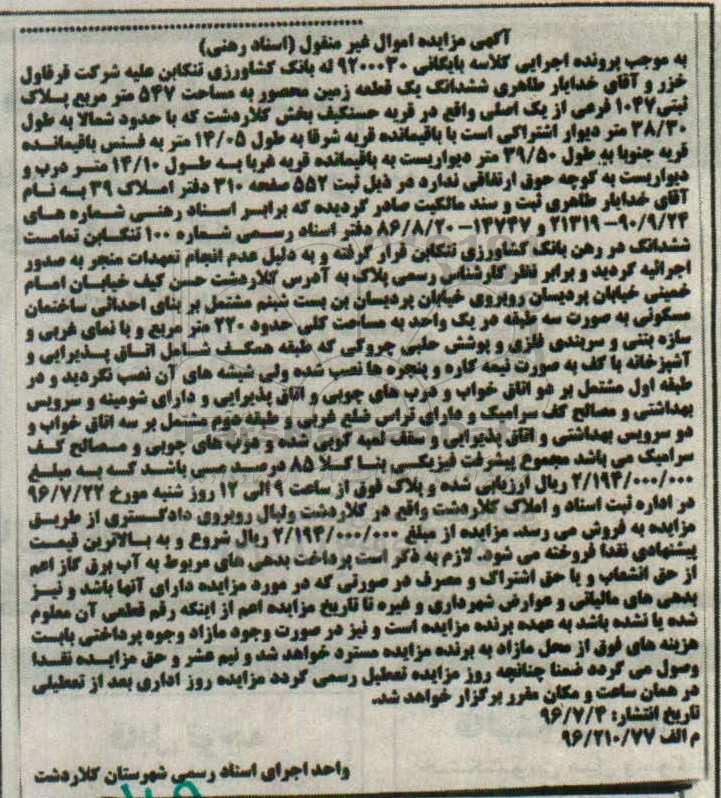 آگهی مزایده اموال غیر منقول (اسناد رهنی)
به موجب پرونده اجرایی کلاسه بایگانی ۹۲۰۰۰۳۰ له بانک کشاورزی تنکابن علیه شرکت قرقاول
خزر و آقای خدایار طاهری ششدانگ یک قطعه زمین محصور به مساحت ۵۴۷ متر مربع پلاک
ثبتی ۱۰۴۷ فرعی از یک اصلی واقع در قریه حسنکیف بخش کلاردشت که با حدود شمالا به طول
۳۸/۳۰ متر دیوار اشتراکی است با باقیمانده قریه شرقا به طول ۱۴/۰۵ متر به فنس باقیمانده
قریه جنوبا به طول ۳۹/۵۰ متر دیواریست به باقیمانده قریه غربا به طول ۱۴/۱۰ متر درب و
دیواریست به کوچه حوق ارتفاقی ندارد در ذیل ثبت ۵۵۲ صفحه ۳۱۰ دفتر املاک ۳۹ به نام
آقای خدایار طاهری ثبت و سند مالکیت صادر گردیده که برابر اسناد رهنی شماره های
۹۰/۹/۲۴-۲۱۳۱۹ و ۱۴۷۴۷-۸۶/۸/۲۰ دفتر اسناد رسمی شماره ۱۰۰ تنکابن تمامت
ششدانگ در رهن بانک کشاورزی تنکابن قرار گرفته و به دلیل عدم انجام تعهدات منجر به صدور
اجرائیه گردید و برابر نظر کارشناس رسمی پلاک به آدرس کلاردشت حسن کیف خیابان امام
خمینی خیابان پردیسان روبروی خیابان پردیسان بن بست شبنم مشتمل بر بنای احداثی ساختمان
مسکونی به صورت سه طبقه در یک واحد به مساحت کلی حدود ۲۲۰ متر مربع و با نمای غربی و
سازه بتنی و سربندی فلزی و پوشش حلبی چروکی که طبقه همکف شامل اتاق پذیرایی و
آشپزخانه با کف به صورت نیمه کاره و پنجره ها نصب شده ولی شیشه های آن نصب نگردید و در
طبقه اول مشتمل بر دو اتاق خواب و درب های چوبی و اتاق پذیرایی و دارای شومینه و سرویس
بهداشتی و مصالح کف سرامیک و دارای تراس ضلع غربی و طبقه دوم مشتمل بر سه اتاق خواب و
دو سرویس بهداشتی و اتاق پذیرایی و سقف لمبه کوبی شده و درب های چوبی و مصالح کف
سرامیک می باشد مجموع پیشرفت فیزیکی بنا کلا ۸۵ درصد می باشد که به مبلغ
۲/۱۹۴/۰۰۰/۰۰۰ ریال ارزیابی شده و پلاک فوق از ساعت ۹ الی ۱۲ روز شنبه مورخ ۹۶/۷/۲۲
در اداره ثبت اسناد و املاک کلاردشت واقع در کلاردشت ولبال روبروی دادگستری از طریق
مزایده به فروش می رسد. مزایده از مبلغ ۲/۱۹۴/۰۰۰/۰۰۰ ریال شروع و به بالاترین قیمت
پیشنهادی نقدا فروخته می شود. لازم به ذکر است پرداخت بدهی های مربوط به آب برق گاز اعم
از حق انشعاب و یا حق اشتراک و مصرف در صورتی که در مورد مزایده دارای آنها باشد و نیز
بدهی های مالیاتی و عوارض شهرداری و غیره تا تاریخ مزایده اعم از اینکه رقم قطعی آن معلوم
شده یا نشده باشد به عهده برنده مزایده است و نیز در صورت وجود مازاد وجوه پرداختی بابت
هزینه های فوق از محل مازاد به برنده مزایده مسترد خواهد شد و نیم عشر و حق مزایده نقدا
وصول می گردد ضمنا چنانچه روز مزایده تعطیل رسمی گردد مزایده روز اداری بعد از تعطیلی
در همان ساعت و مکان مقرر برگزار خواهد شد.
تاریخ انتشار: ۹۶/۷/۴
م الف ۹۶/۲۱۰/۷۷
واحد اجرای اسناد رسمی شهرستان کلاردشت